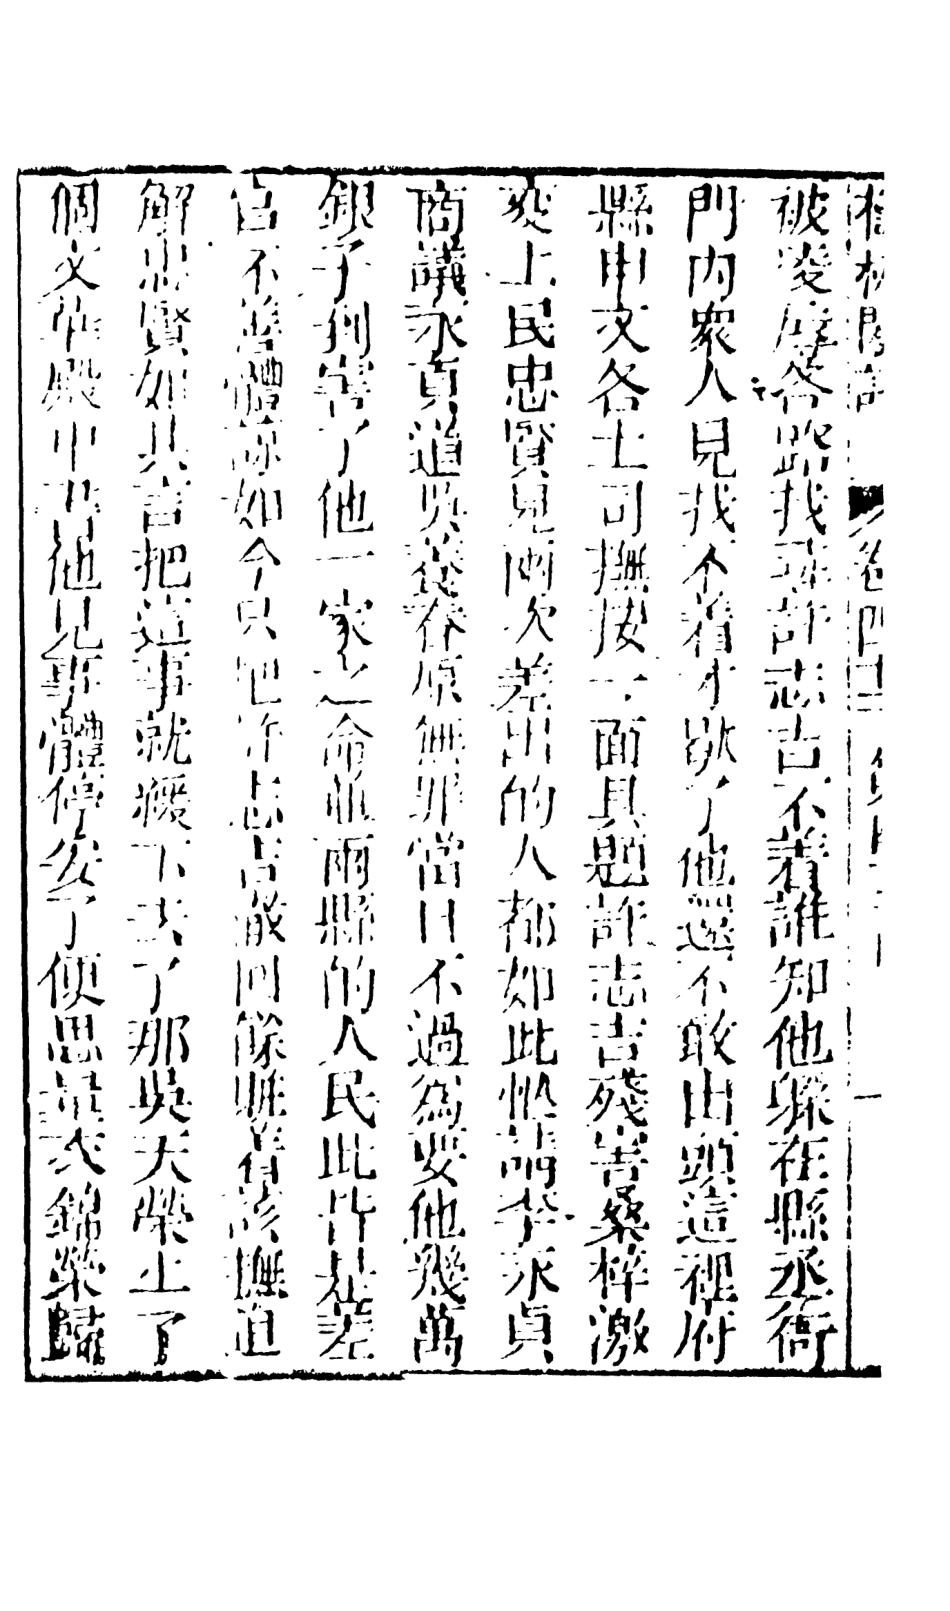 檮杌閒評 卷四十
被凌辱各路找尋許志吉不着誰知他躱在縣丞衙
門內衆人見找不着才歇了他還不敢出頭這裡府
縣申文各上司撫按一面具題許志吉殘害桑梓激
变士民忠賢見兩次差出的人都如此忙請李永貞
商議永貞道吳養春原無罪當日不過為要他幾萬
銀子到害了他一家之命並兩縣的人民此皆是差
官不善體諒如今只把許志吉撤回餘賍着該撫追
解忠賢如其言把這事就緩下去了那吳天榮止了
個文華殿中書他見事體停妥了便思量衣錦榮歸